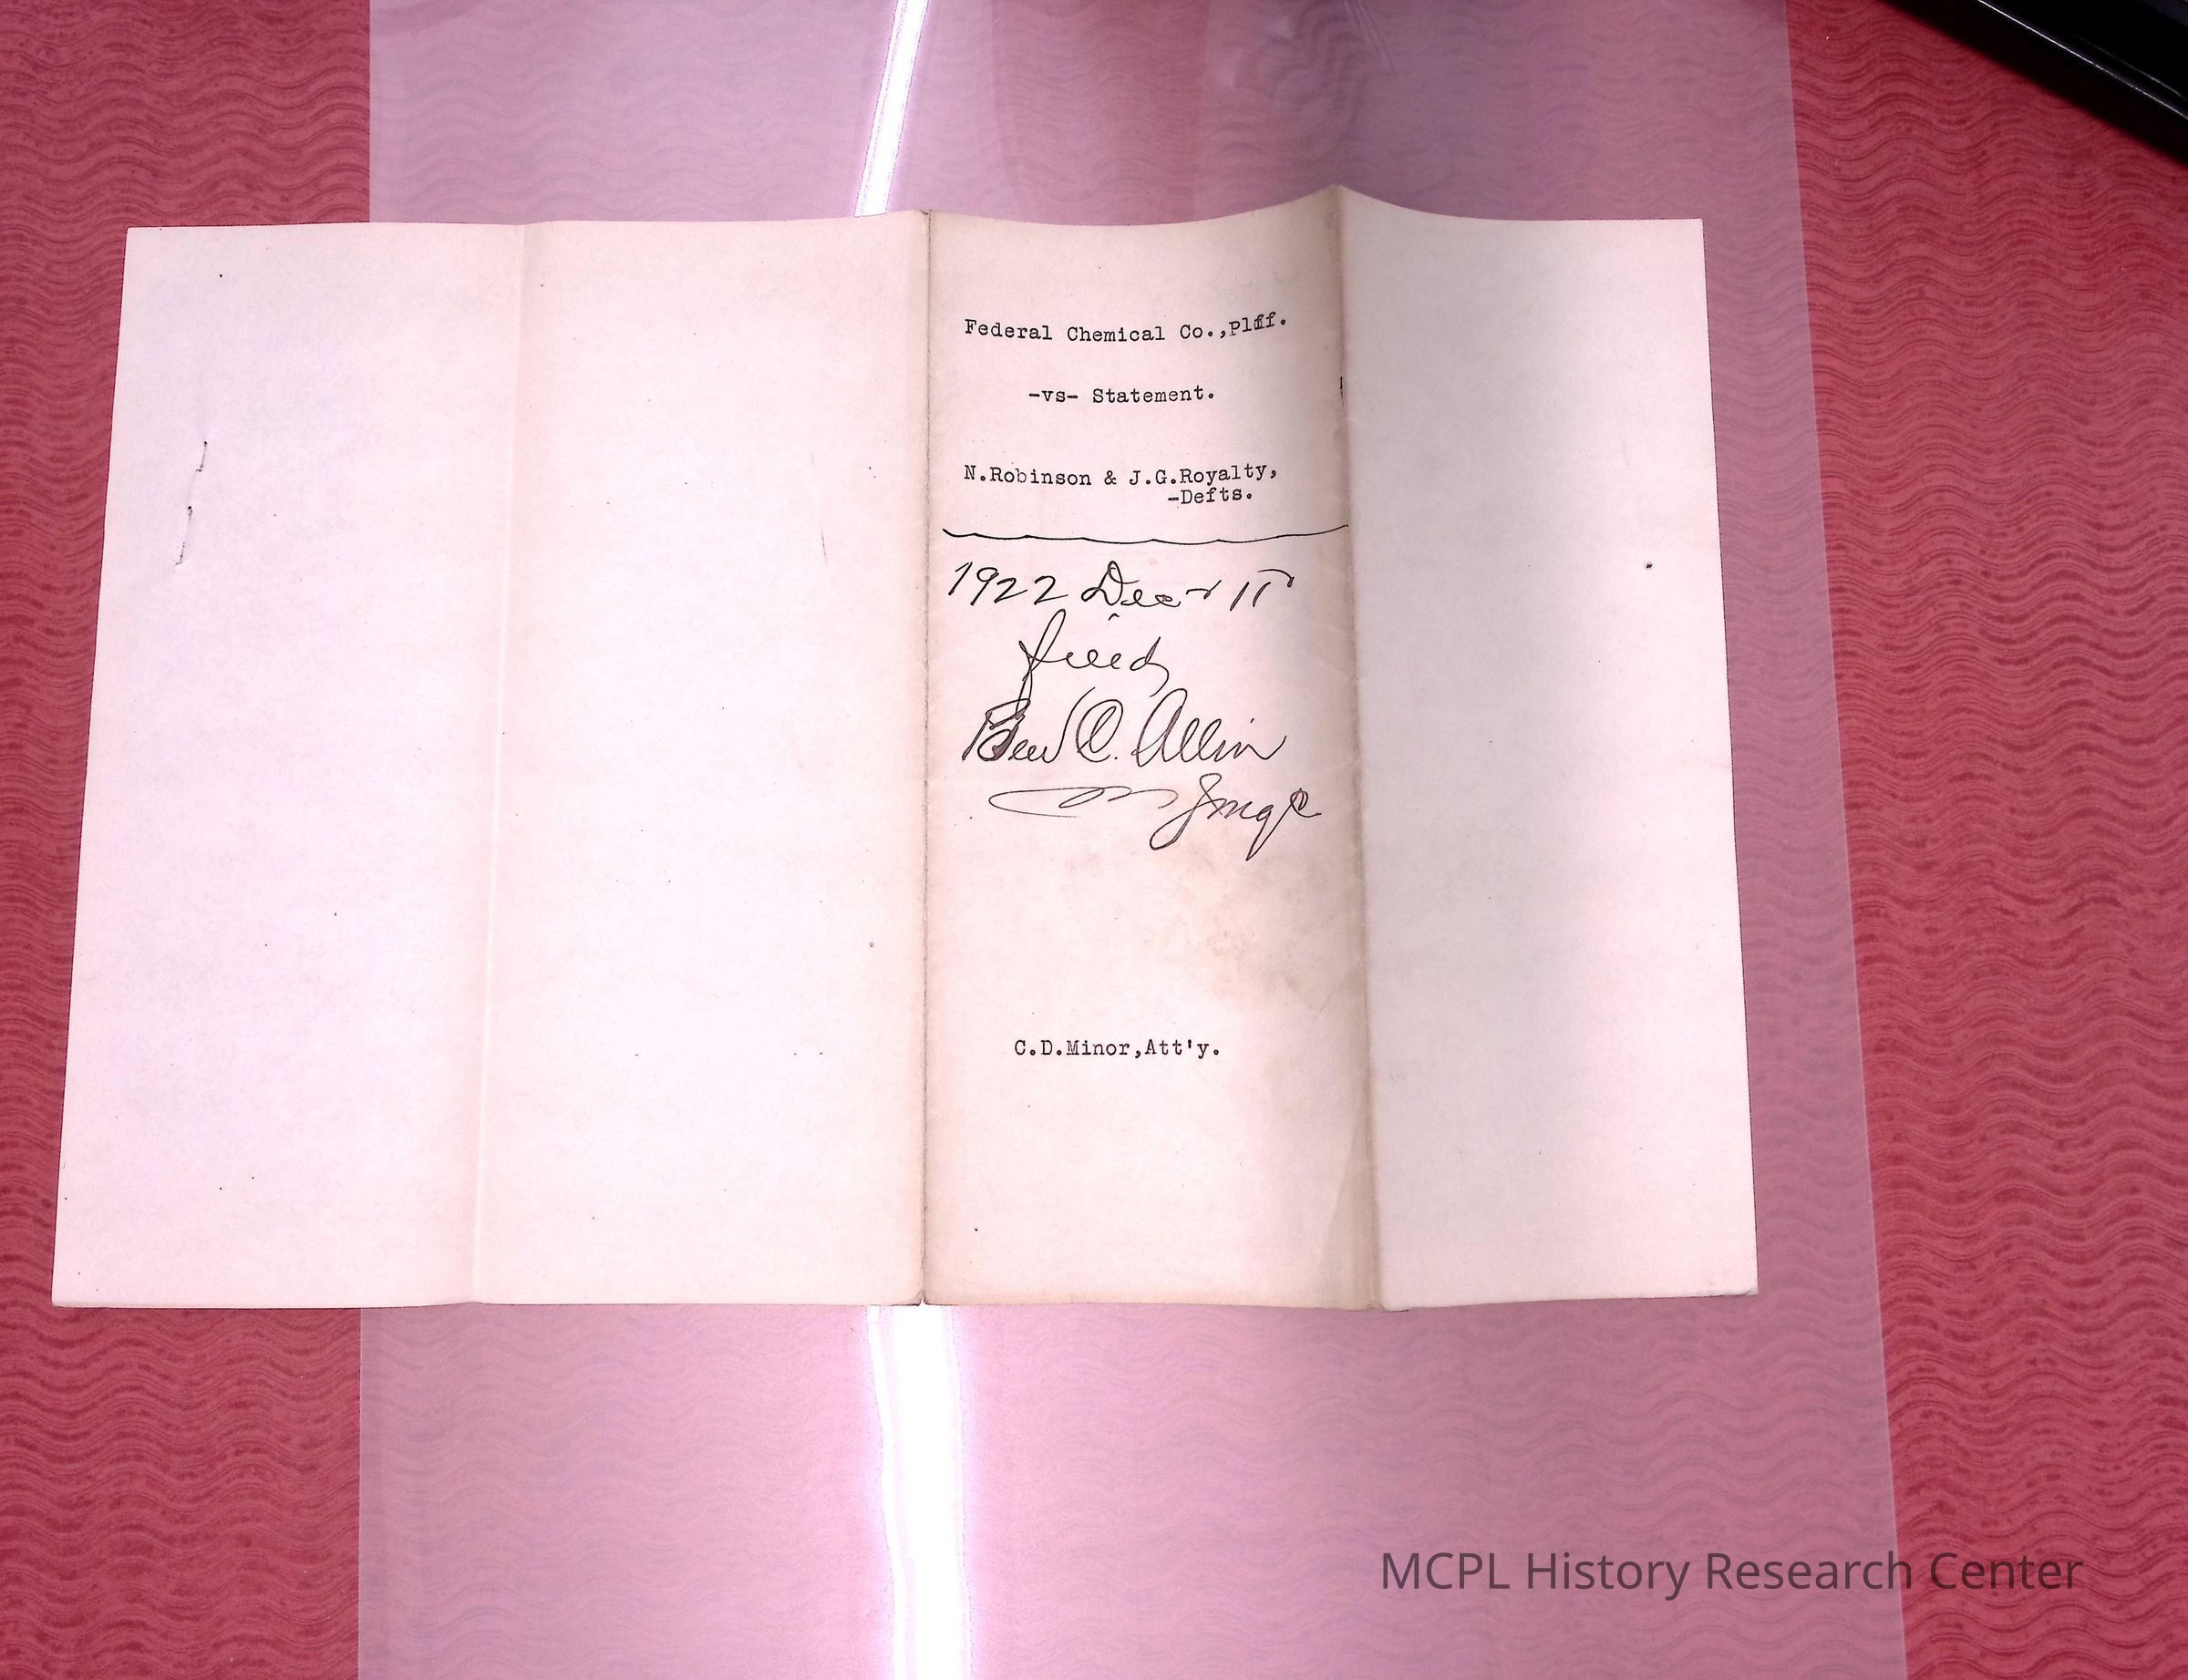 Federal Chemical Co.,Plff.
-vs- Statement.
N.Robinson & J.G.Royalty,
-Defts.
1922 Decr
filed
Ben C. Allin
C.D.Minor,Att'y.
MCPL History Research Center